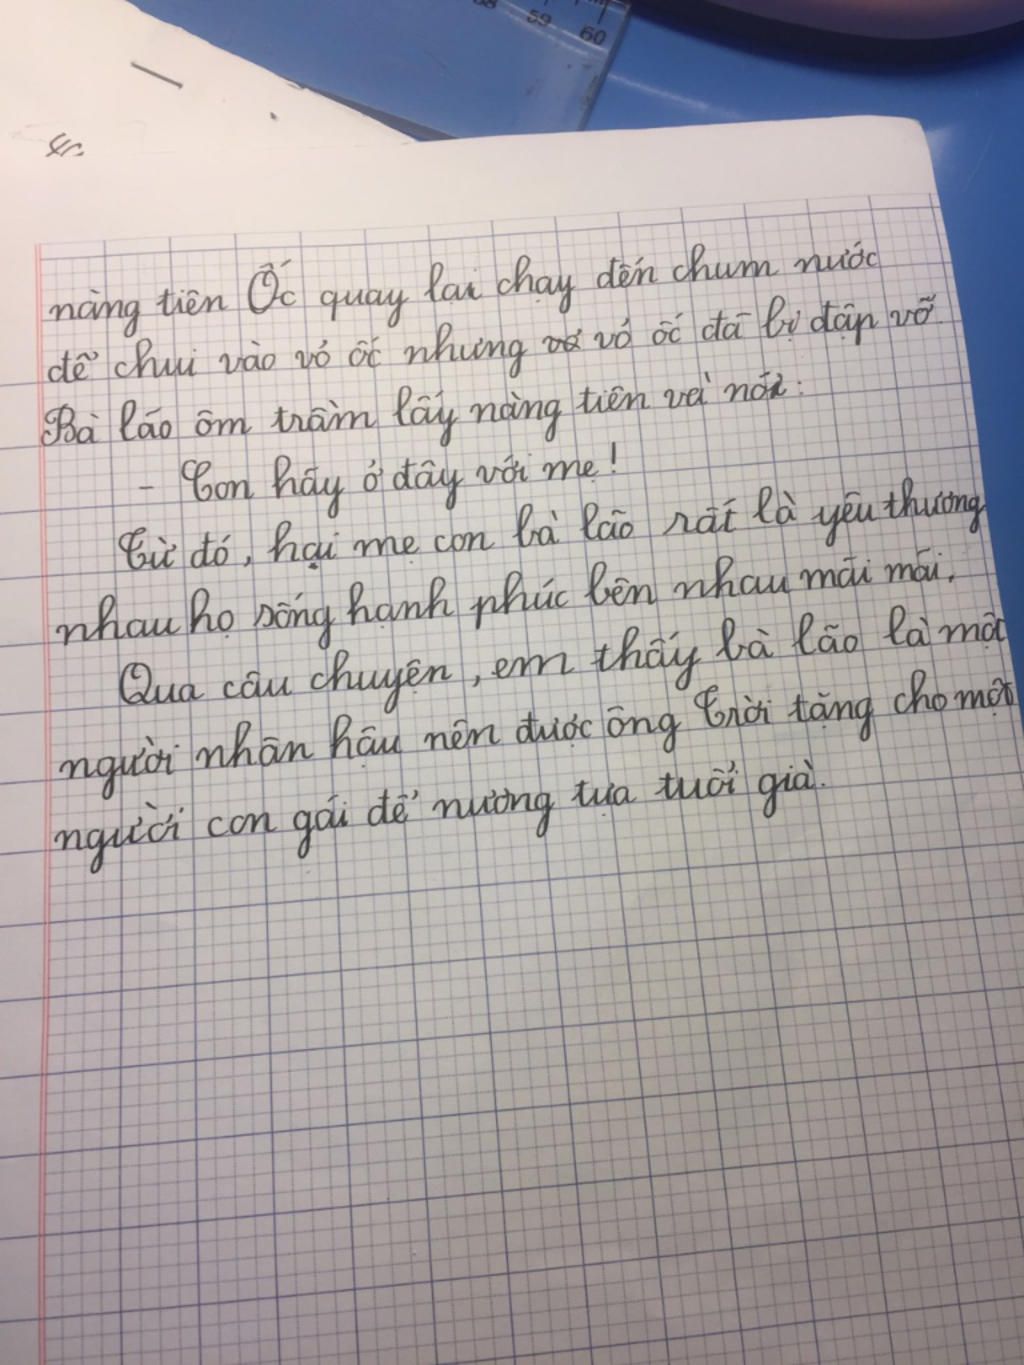 58 59 60
nàng tiên Ốc quay lại chạy đến chum nước
để chui vào vỏ ốc nhưng vỏ ốc đã bị đập vỡ.
Bà lão ôm trầm lấy nàng tiên và nói:
- Con hãy ở đây với mẹ!
Từ đó, hai mẹ con bà lão rất là yêu thương
nhau họ sống hạnh phúc bên nhau mãi mãi.
Qua câu chuyện, em thấy bà lão là một
người nhân hậu nên được ông Trời tặng cho một
người con gái để nương tựa tuổi già.